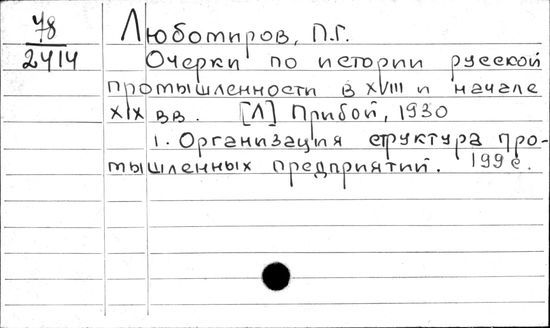 78
2414
Любомиров, П.Г.
Очерки по истории русской
промышленности в XVIII и начале
XIX вв. [Л] Прибой, 1930
1. Организация структура про-
мышленных предприятий. 199 с.